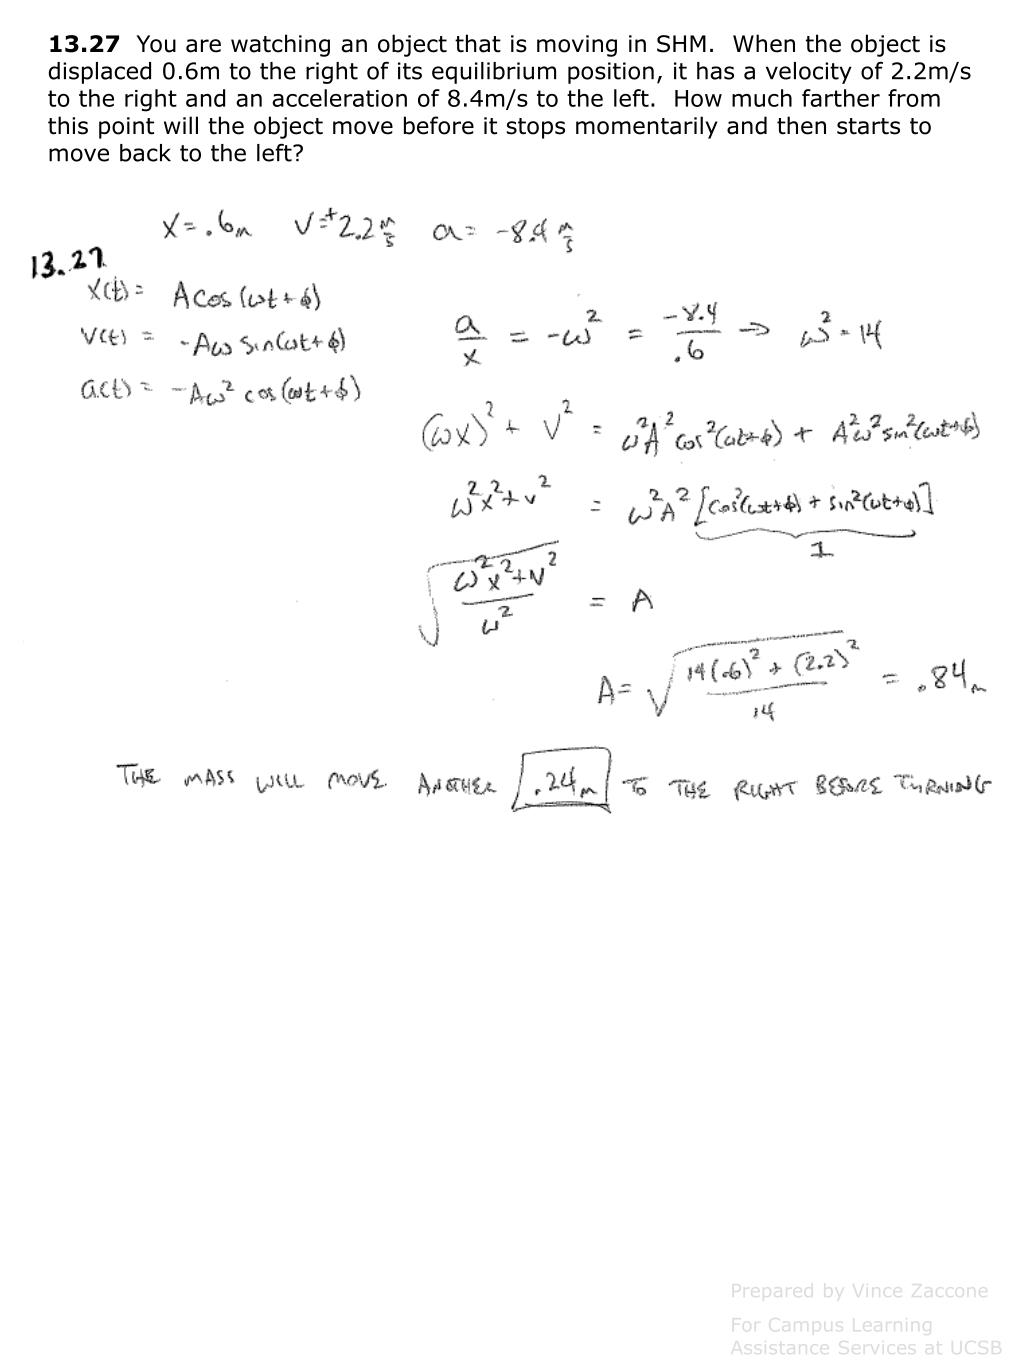 13.27 You are watching an object that is moving in SHM. When the object is
displaced 0.6m to the right of its equilibrium position, it has a velocity of 2.2m/s
to the right and an acceleration of 8.4m/s to the left. How much farther from
this point will the object move before it stops momentarily and then starts to
move back to the left?
x = .6m v=+2.2 m/s a = -8.4 m/s
13.27
x(t) = A cos(ωt+ϕ)
v(t) = -Aω sin(ωt+ϕ)
a(t) = -Aω² cos(ωt+ϕ)
a/x = -ω² = -8.4/.6 ⇒ ω² = 14
(ωx)² + v² = ω²A² cos²(ωt+ϕ) + A²ω² sin²(ωt+ϕ)
ω²x² + v² = ω²A² [cos²(ωt+ϕ) + sin²(ωt+ϕ)]
1
√((ω²x²+v²)/ω²) = A
A = √((14(.6)² + (2.2)²)/14) = .84m
THE MASS WILL MOVE ANOTHER .24m TO THE RIGHT BEFORE TURNING
Prepared by Vince Zaccone
For Campus Learning
Assistance Services at UCSB